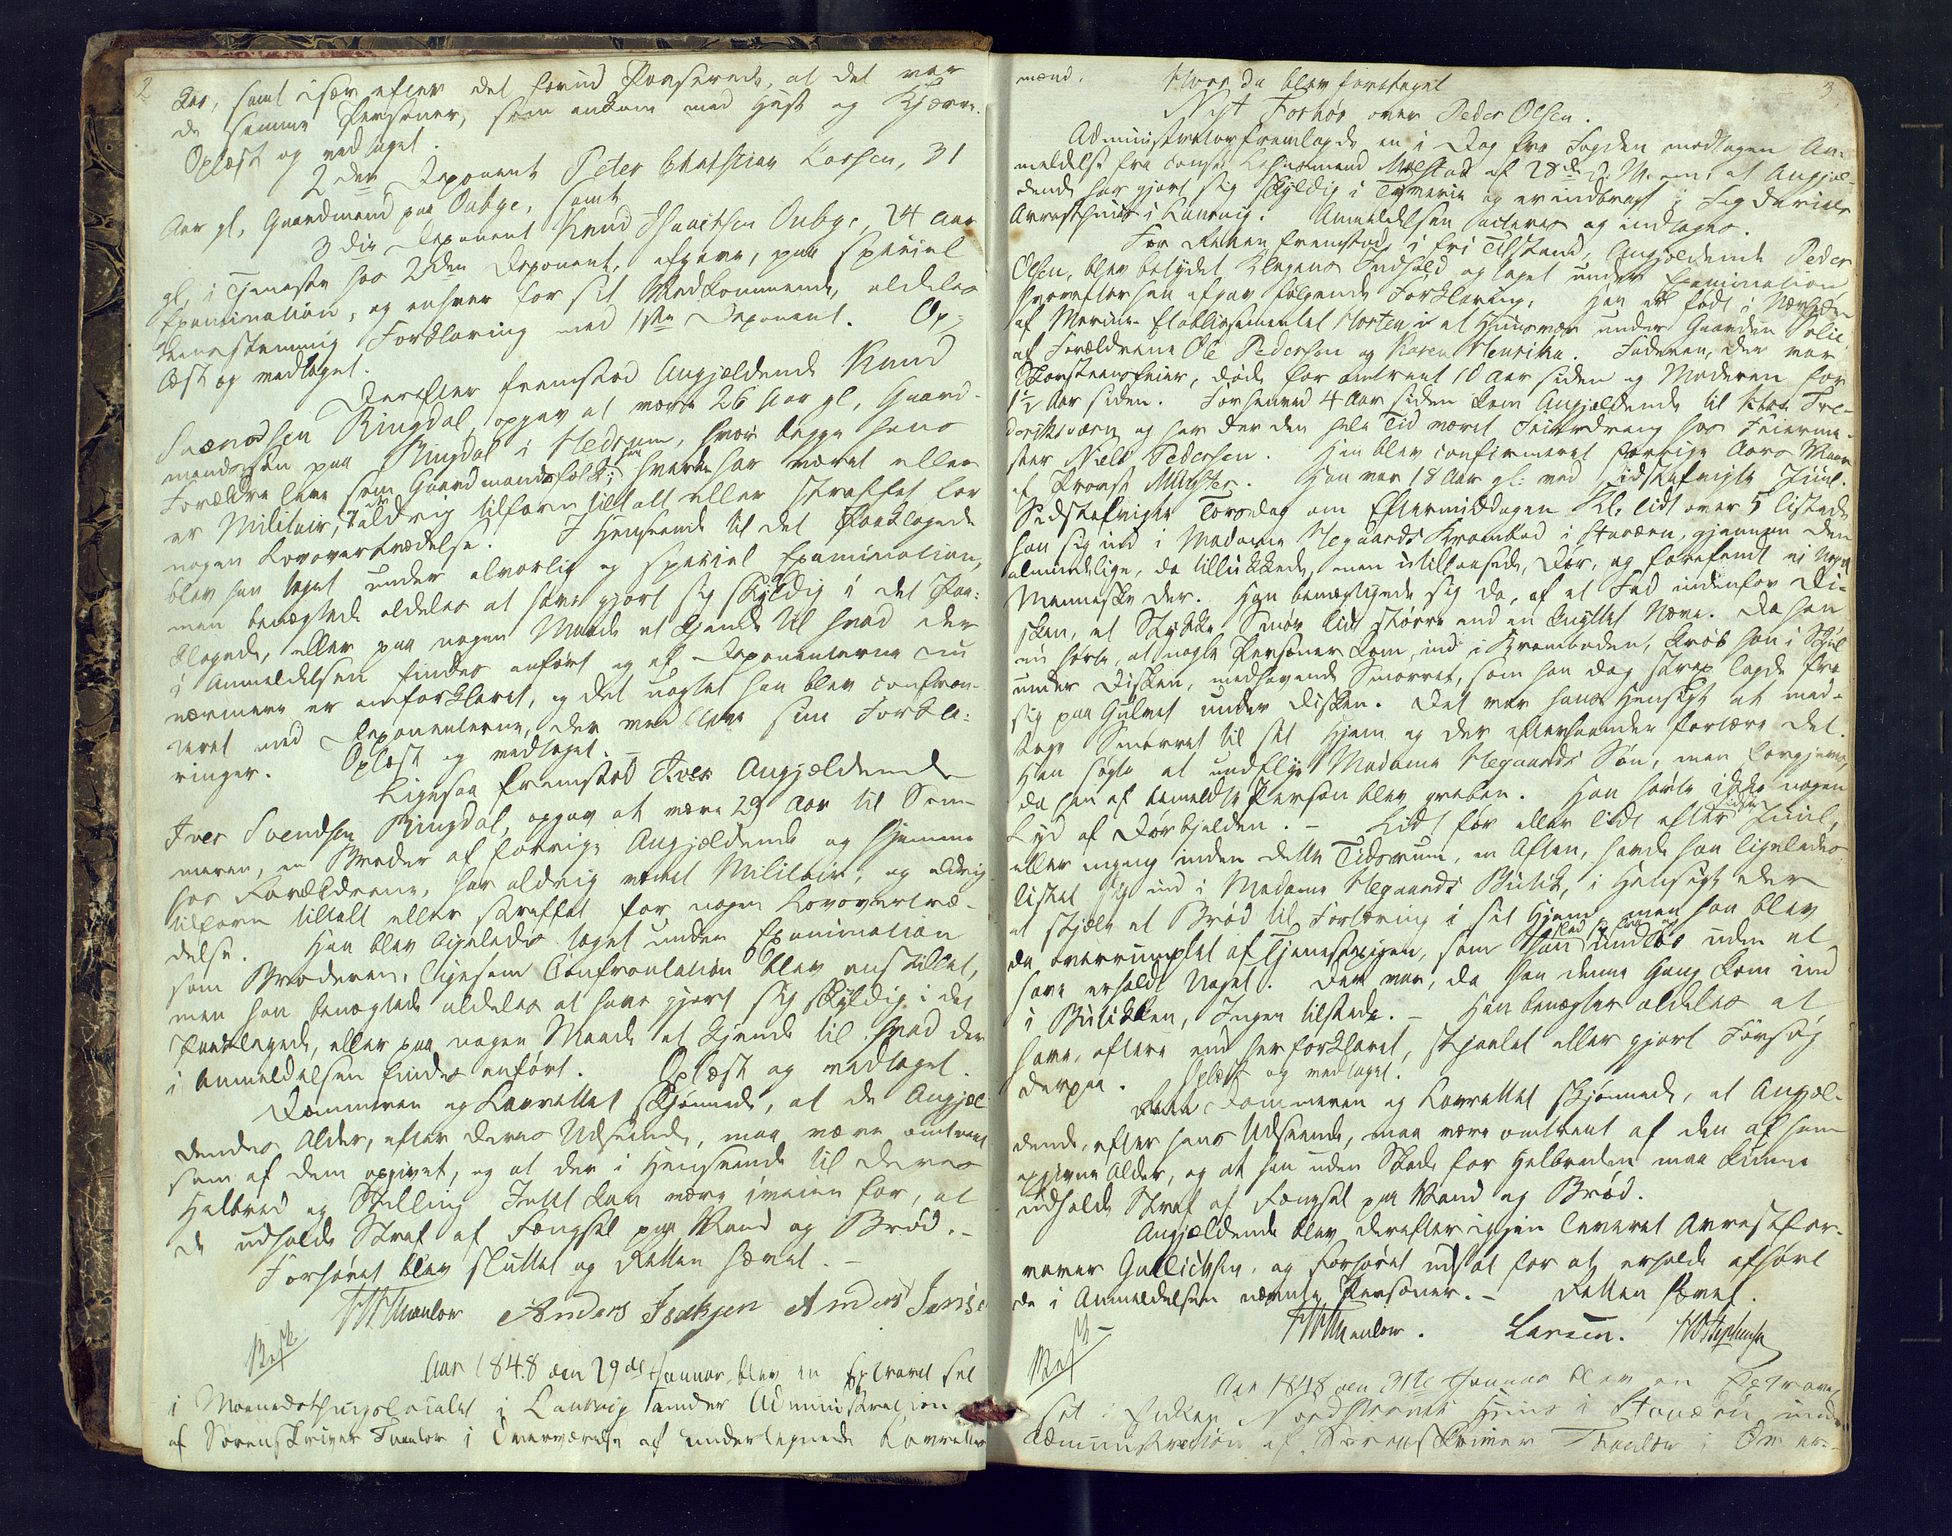 2
Aar, samt især efter det forud Passerede, at det var
de samme Personer, som ankom med Hest og Kjærre.
Oplæst og vedtaget.
2den Deponent Peter Christian Larsen, 31
Aar gl, Gaardmand paa Ouby, samt
3die Deponent Knud Ouby, 24 Aar
gl, i Tjeneste hos 2den Deponent, afgave, paa speciel
Examination, og enhver for sit Vedkommende, aldeles
eensstemmig Forklaring med 1ste Deponent. Op-
læst og vedtaget.
Derefter fremstod Angjældende Knud
Svendsen Ringdal, opgav at være 26 Aar gl, Gaard-
mandssøn paa Ringdal i Hedrum, hvor begge hans
Forældre leve som Gaardmandsfolk; han hverken har været eller
er Militair, aldrig tilforn tiltalt eller straffet for
nogen Lovovertrædelse. I Henseende til det Paaklagede
blev han taget under alvorlig og speciel Examination,
men benægtede aldeles at have gjort sig skyldig i det Paa-
klagede, eller paa nogen Maade at kjende til hvad der
i Anmeldelsen findes anført og af Deponenterne nu
nærmere er anforklaret, og det uagtet han blev confron-
teret med Deponenterne, der vedbleve sine Forkla-
ringer. Oplæst og vedtaget.
Ligesaa fremstod Angjældende
Iver Svendsen Ringdal, opgav at være 29 Aar til Som-
meren, en Broder af forrige Angjældende og hjemme
hos Forældrene, har aldrig været Militair, og aldrig
tilforn tiltalt eller straffet for nogen Lovovertræ-
delse. Han blev ligeledes taget under Examination
som Broderen, ligesom Confrontation og blev anstillet,
men han benægtede aldeles at have gjort sig skyldig i det
Paaklagede, eller paa nogen Maade at kjende til hvad der
i Anmeldelsen findes anført. Oplæst og vedtaget.
Dommeren og Laurettet skjønnede, at de Angjæl-
dendes Alder, efter deres Udseende, maa være omtrent
som af dem opgivet, og at der i Henseende til deres
Helbred og Stilling Intet kan være iveien for, at
de udholde Straf af Fængsel paa Vand og Brød. -
Forhøret blev sluttet og Retten hævet. -
Thaulow Anders Isaksen Anders
Aar 1848 den 29de Januar, blev en Extraret sat
i Maanedsthingslocalet i Laurvig under Administration
af Sorenskriver Thaulow i Overværelse af undertegnede Lavrettes-
3
mænd. Hvor da blev foretaget
Nyt Forhør over Peder Olsen.
Administrator fremlagde en i Dag fra Fogden modtagen An-
meldelse fra constit. Lehnsmand Mølstad af 28de d. M. om at Angjæl-
dende har gjort sig skyldig i Tyverie og er indbragt i Frederiks
Arresthuus i Laurvig. Anmeldelsen acteres og indtages.
For Retten fremstod, i fri Tilstand, Angjældende Peder
Olsen, blev betydet Klagens Indhold og taget under Examination,
hvorefter han afgav følgende Forklaring: Han er født i Nærheden
af Marine-Etablissementet Horten i et Huusvær under Gaarden
af Forældrene Ole Pedersen og Karen Henrika. Faderen, der var
Skorsteensfeier, døde for omtrent 10 Aar siden og Moderen for
1½ Aar siden. For henved 4 Aar siden kom Angjældende til Fre-
deriksværn og har der den hele Tid været Feierdreng hos Feierme-
ster Niels Pedersen. Han blev confirmeret forrige Aars
af Provst Münster. Han var 18 Aar gl: ved sidstafvigte Juul.
Sidstafvigte Torsdag om Eftermiddagen Kl. lidt over 5 listede
han sig ind i Madame Hegaards Krambod i Stavern, gjennem den
almindelige, da tillukkede, men utillaasede, Dør, og forefandt ei noget
Menneske der. Han bemægtigede sig da, af et Fad indenfor Di-
sken, et Stykke Smør lidt større end en knyttet Næve. Da han
nu hørte, at nogle Personer kom ind i Kramboden, krøb han i Skjul
under Disken, medhavende Smørret, som han dog strax lagde fra
sig paa Gulvet under Disken. Det var hans Hensigt at med-
tage Smørret til sit Hjem og der efterhaanden fortære det.
Han søgte at undflye Madame Hegaards Søn, men forgjæves,
da han af bemeldte Person blev greben. Han hørte ikke nogen
Lyd af Dørbjelden. - Lidt før eller lidt efter sidste Juul,
eller engang inden dette Tidsrum, en Aften, havde han ligeledes
listet sig ind i Madame Hegaards Butik, i Hensigt der
at stjæle et Brød til Fortæring i sit Hjem, men han blev
da overrumplet af Tjenestepigen, som han undløb uden at
have erholdt Noget. Der var, da han denne Gang kom ind
i Butikken, Ingen tilstede. - Han benægter aldeles at
have, oftere end her forklaret, stjaalet eller gjort Forsøg
derpaa. Oplæst og vedtaget.
Dommeren og Lavrettet skjønnede, at Angjæl-
dende, efter hans Udseende, maa være omtrent af den af ham
opgivne Alder, og at han uden Skade for Helbreden maa kunne
udholde Straf af Fængsel paa Vand og Brød.
Angjældende blev derefter igjen leveret Arrestfor-
varer Gullichsen, og Forhøret udsat for at erholde afhørt
de i Anmeldelsen nævnte Personer. - Retten hævet.
Thaulow. Larsen.
Aar 1848 den 31te Januar blev en Extraret
sat i Huus i Stavern under
Administration af Sorenskriver Thaulow i Overvæ-